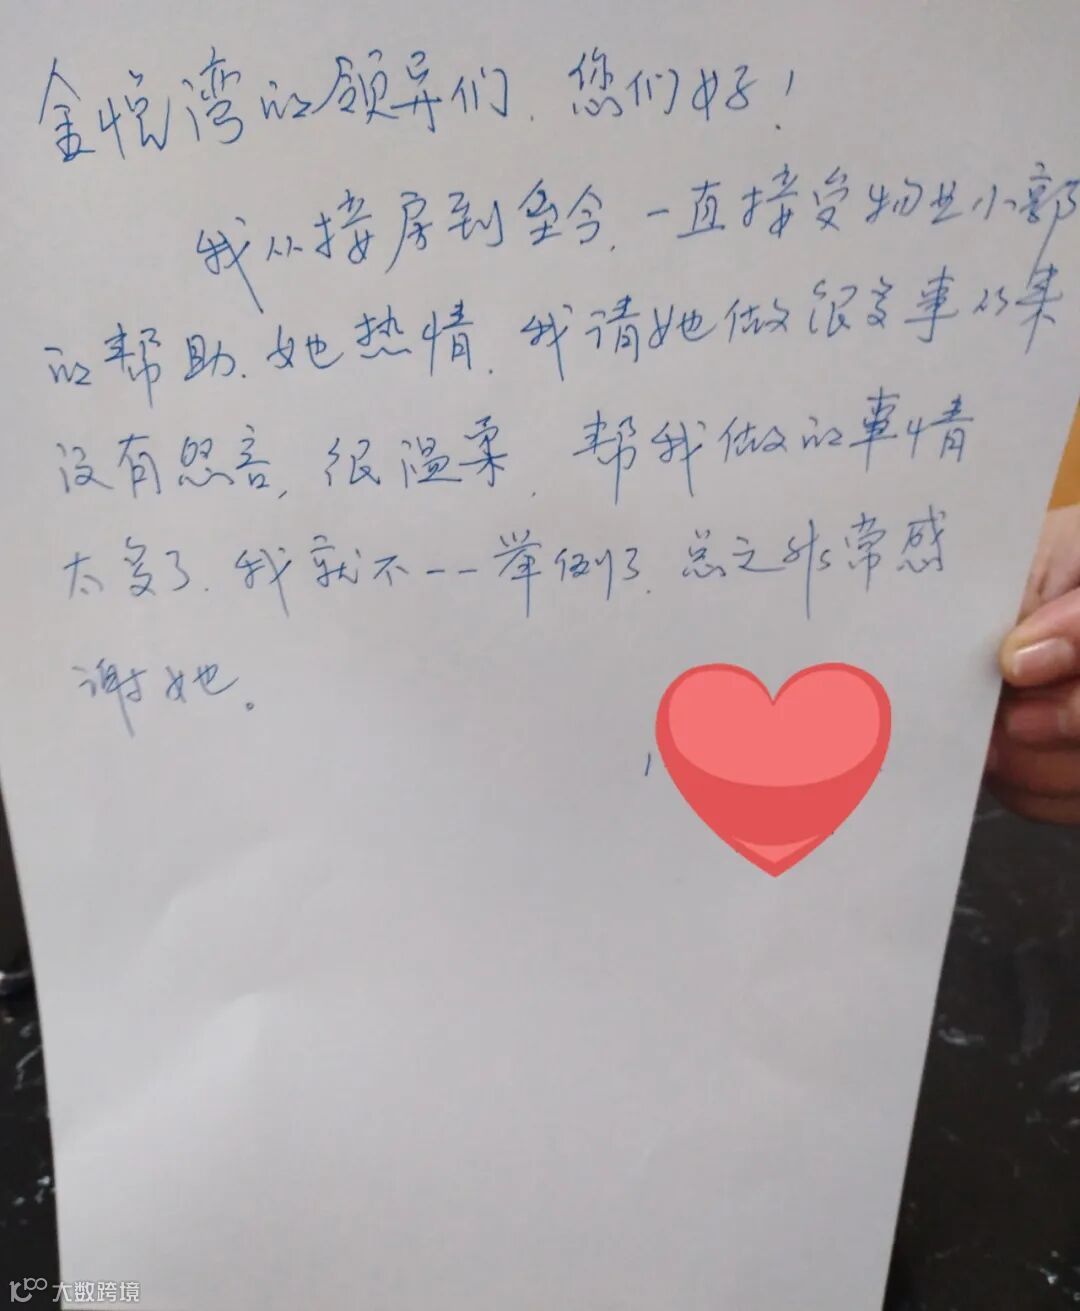 金悦湾的领导们，您们好！
我从接房到至今，一直接受物业小郭
的帮助，她热情，我请她做很多事从来
没有怨言，很温柔，帮我做的事情
太多了，我就不一一举例了，总之非常感
谢她。
大数跨境